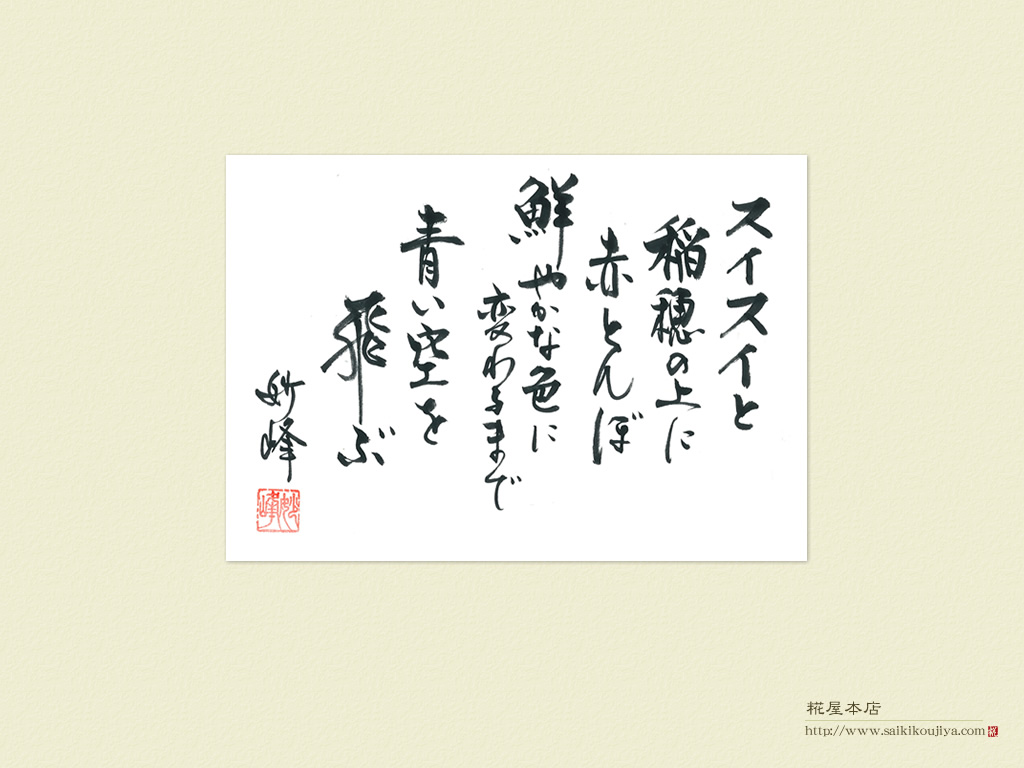 スイスイと
稲穂の上に
赤とんぼ
鮮やかな色に
変わるまで
青い空を
飛ぶ
妙峰
妙峰
糀屋本店
http://www.saikikoujiya.com 糀